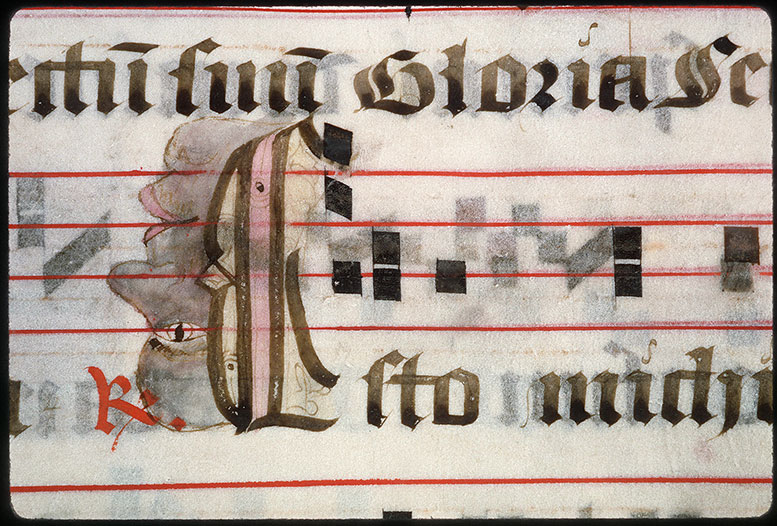 ectū ſuū Gloria Se
℟. Eſto michi